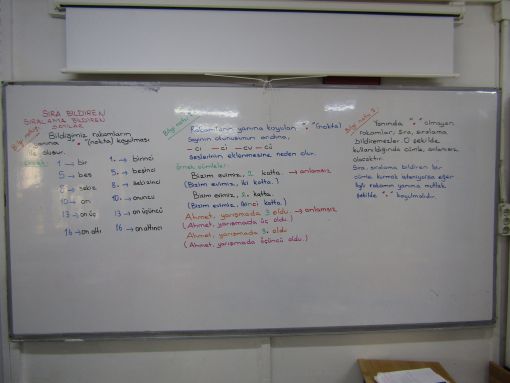 SIRA BİLDİREN
SIRALAMA BİLDİREN
SAYILAR
Bildiğimiz rakamların
yanına "." (nokta) koyulması
ile oluşur.
1 → bir 1. → birinci
5 → beş 5. → beşinci
8 → sekiz 8. → sekizinci
10 → on 10. → onuncu
13 → on üç 13. → on üçüncü
16 → on altı 16. → on altıncı
Rakamların yanına koyulan "." (nokta)
Sayının okunuşunun ardına,
- cı - ci - cu - cü
seslerinin eklenmesine neden olur.
Örnek cümleler:
Bizim evimiz, 2 katta. → anlamsız
(Bizim evimiz, iki katta.)
Bizim evimiz, 2. katta.
(Bizim evimiz, ikinci katta.)
Ahmet, yarışmada 3 oldu. → anlamsız
(Ahmet, yarışmada üç oldu.)
Ahmet, yarışmada 3. oldu.
(Ahmet, yarışmada üçüncü oldu.)
Yanında "." olmayan
rakamlar, sıra, sıralama
bildiremezler. O şekilde
kullanıldığında cümle, anlamsız
olacaktır.
Sıra, sıralama bildiren bir
cümle kurmak isteniyorsa eğer
ilgili rakamın yanına mutlak
şekilde "." koyulmalıdır.